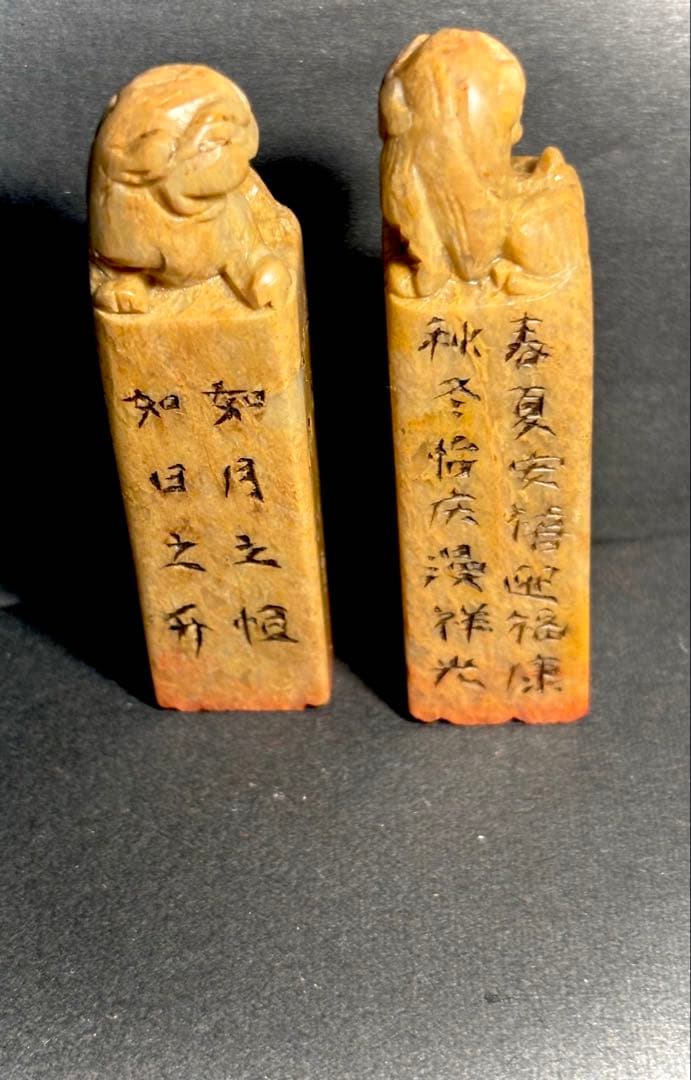 如月之恒
如日之升
春夏安禧迎福康
秋冬怡庆漫祥光